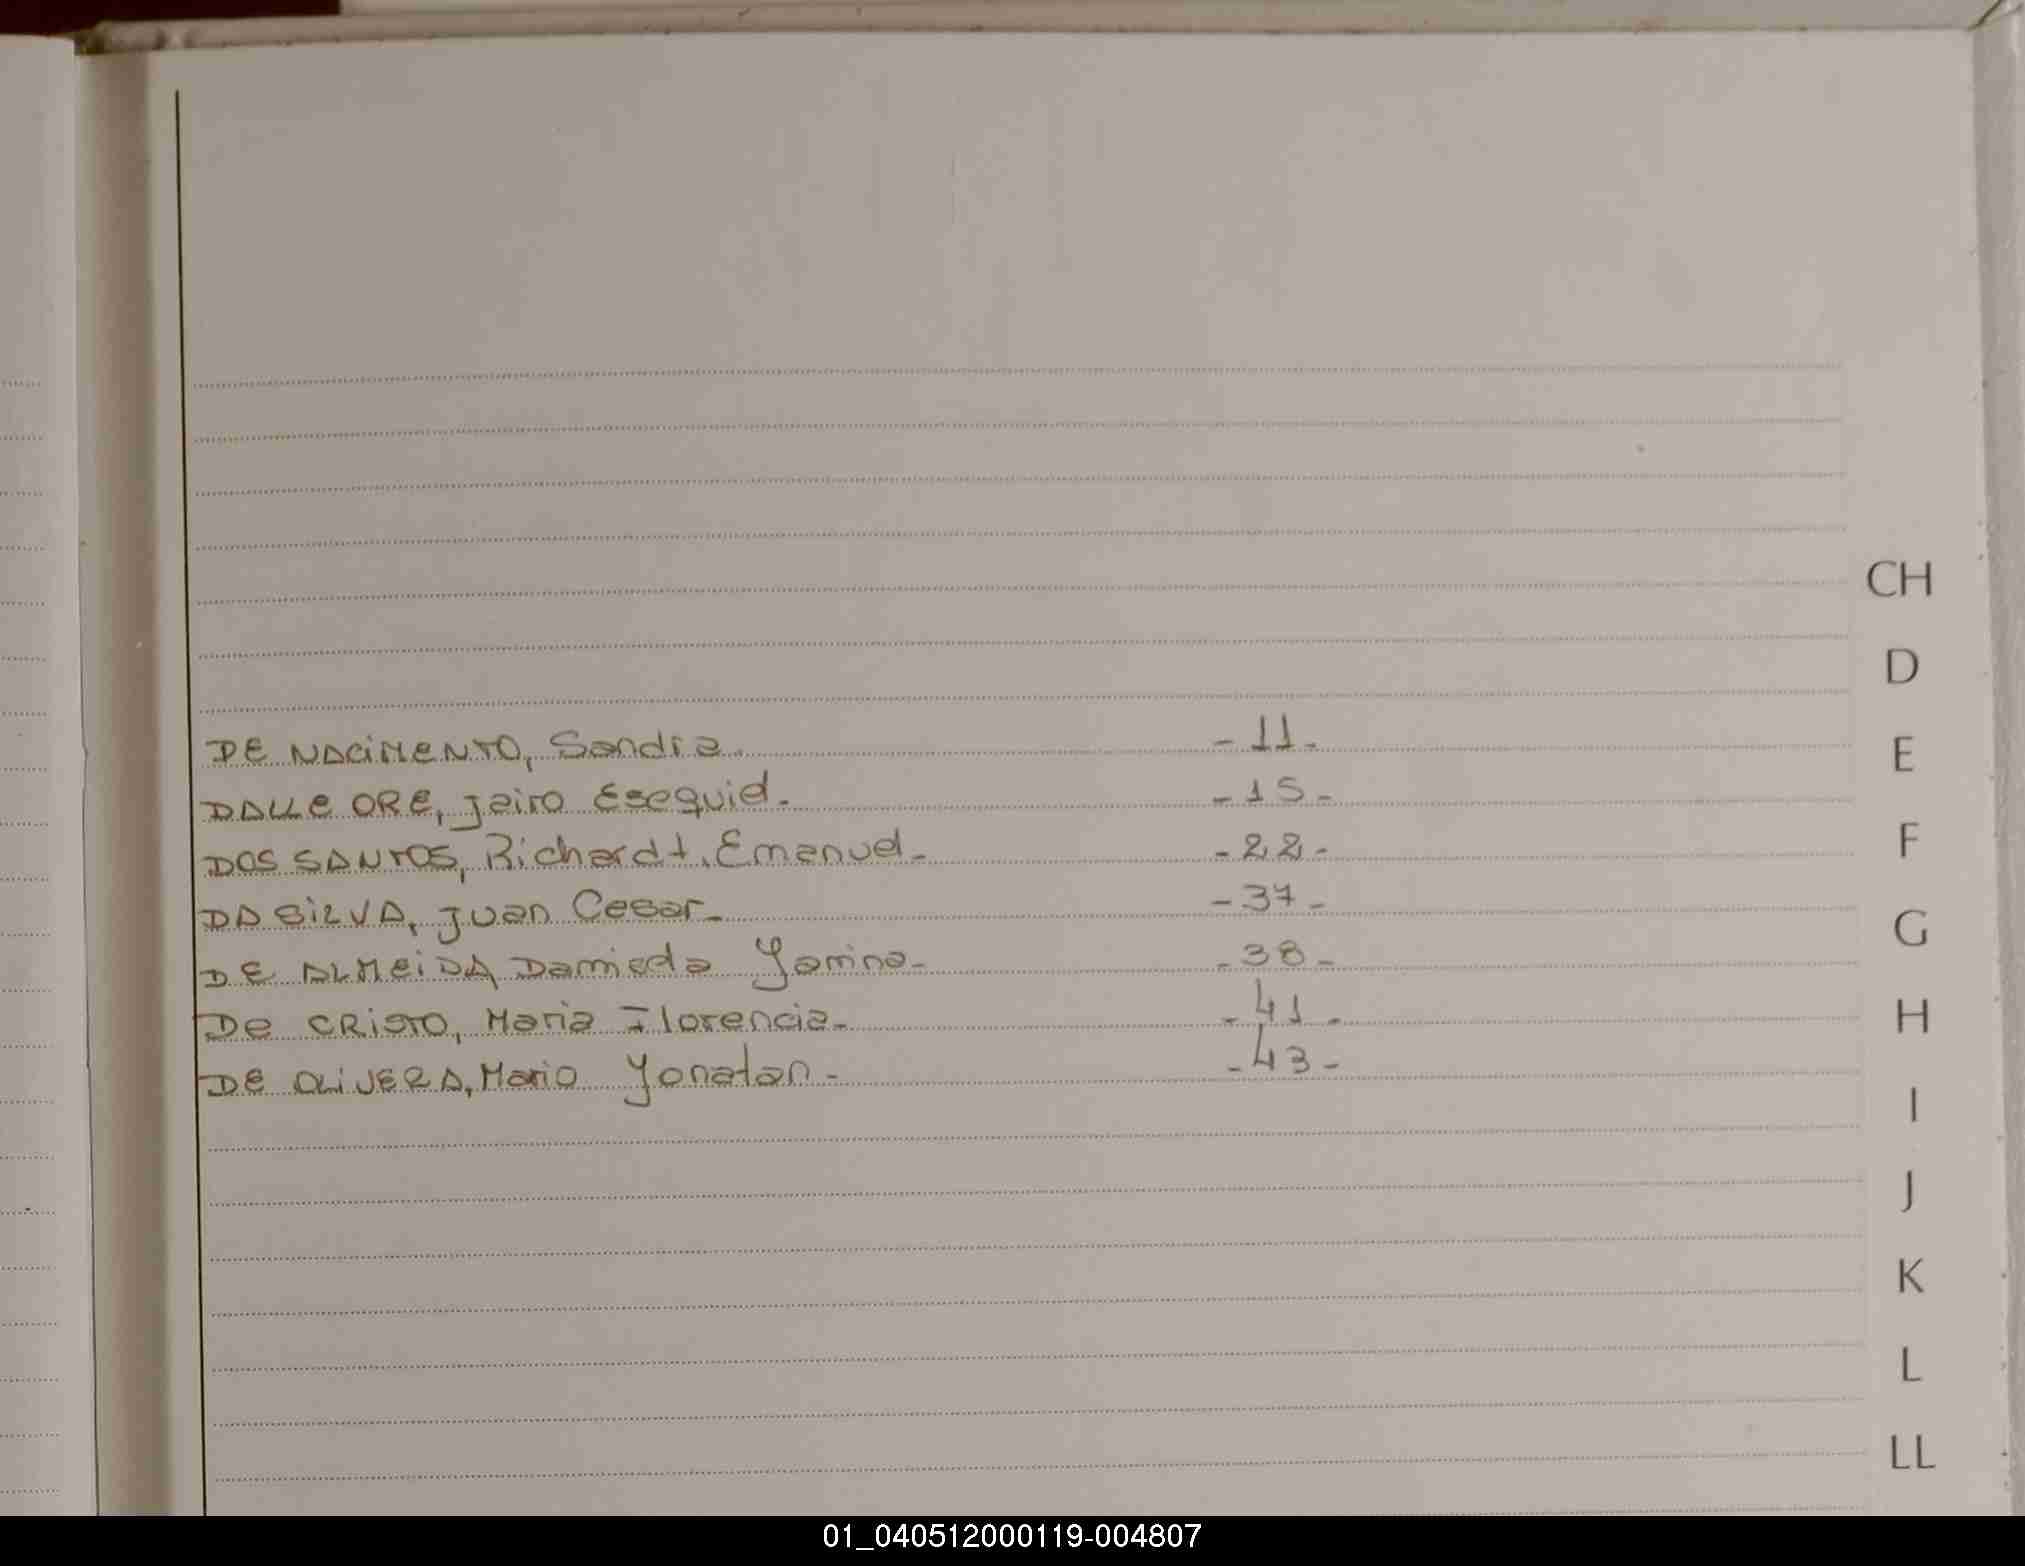 DE NACIMENTO, Sandra. -11-
DALLE ORE, Jairo Esequiel. -15-
DOS SANTOS, Richardt, Emanuel- -22-
DA SILVA, Juan Cesar- -37-
DE ALMEIDA, Yamina- -38-
De CRISTO, Maria Florencia- -41-
DE OLIVERA, Mario Yonatan- -43-
CH
D
E
F
G
H
I
J
K
L
LL
01_040512000119-004807